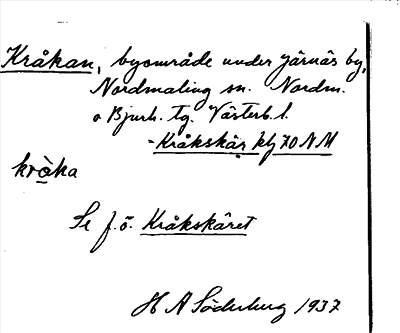 Kråkan, byområde under Järnäs by,
Nordmaling sn. Nordm.
o Bjurh. tg. Västerb. l.
- Kråkskär, kbj 70 NM
kråka
Se f.ö. Kråkskäret
H A Söderberg 1937